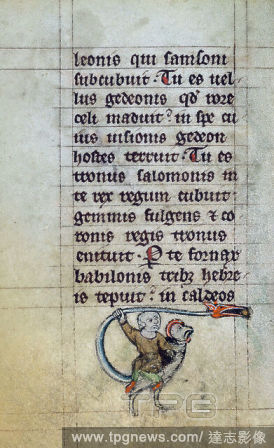 leonis qui samsoni
subcubuit · Tu es uel
lus gedeonis qd' rore
celi maduit : in spe cu
ius uisionis gedeon
hostes terruit · Tu es
tronus salomonis in
te rex regum cubuit
gemmis fulgens & co
ronis regis tronus
enituit · O te fornax
babilonis tribz hebre
is tepuit : in caldeos
TPG
www.tpgnews.com/ 達志影像